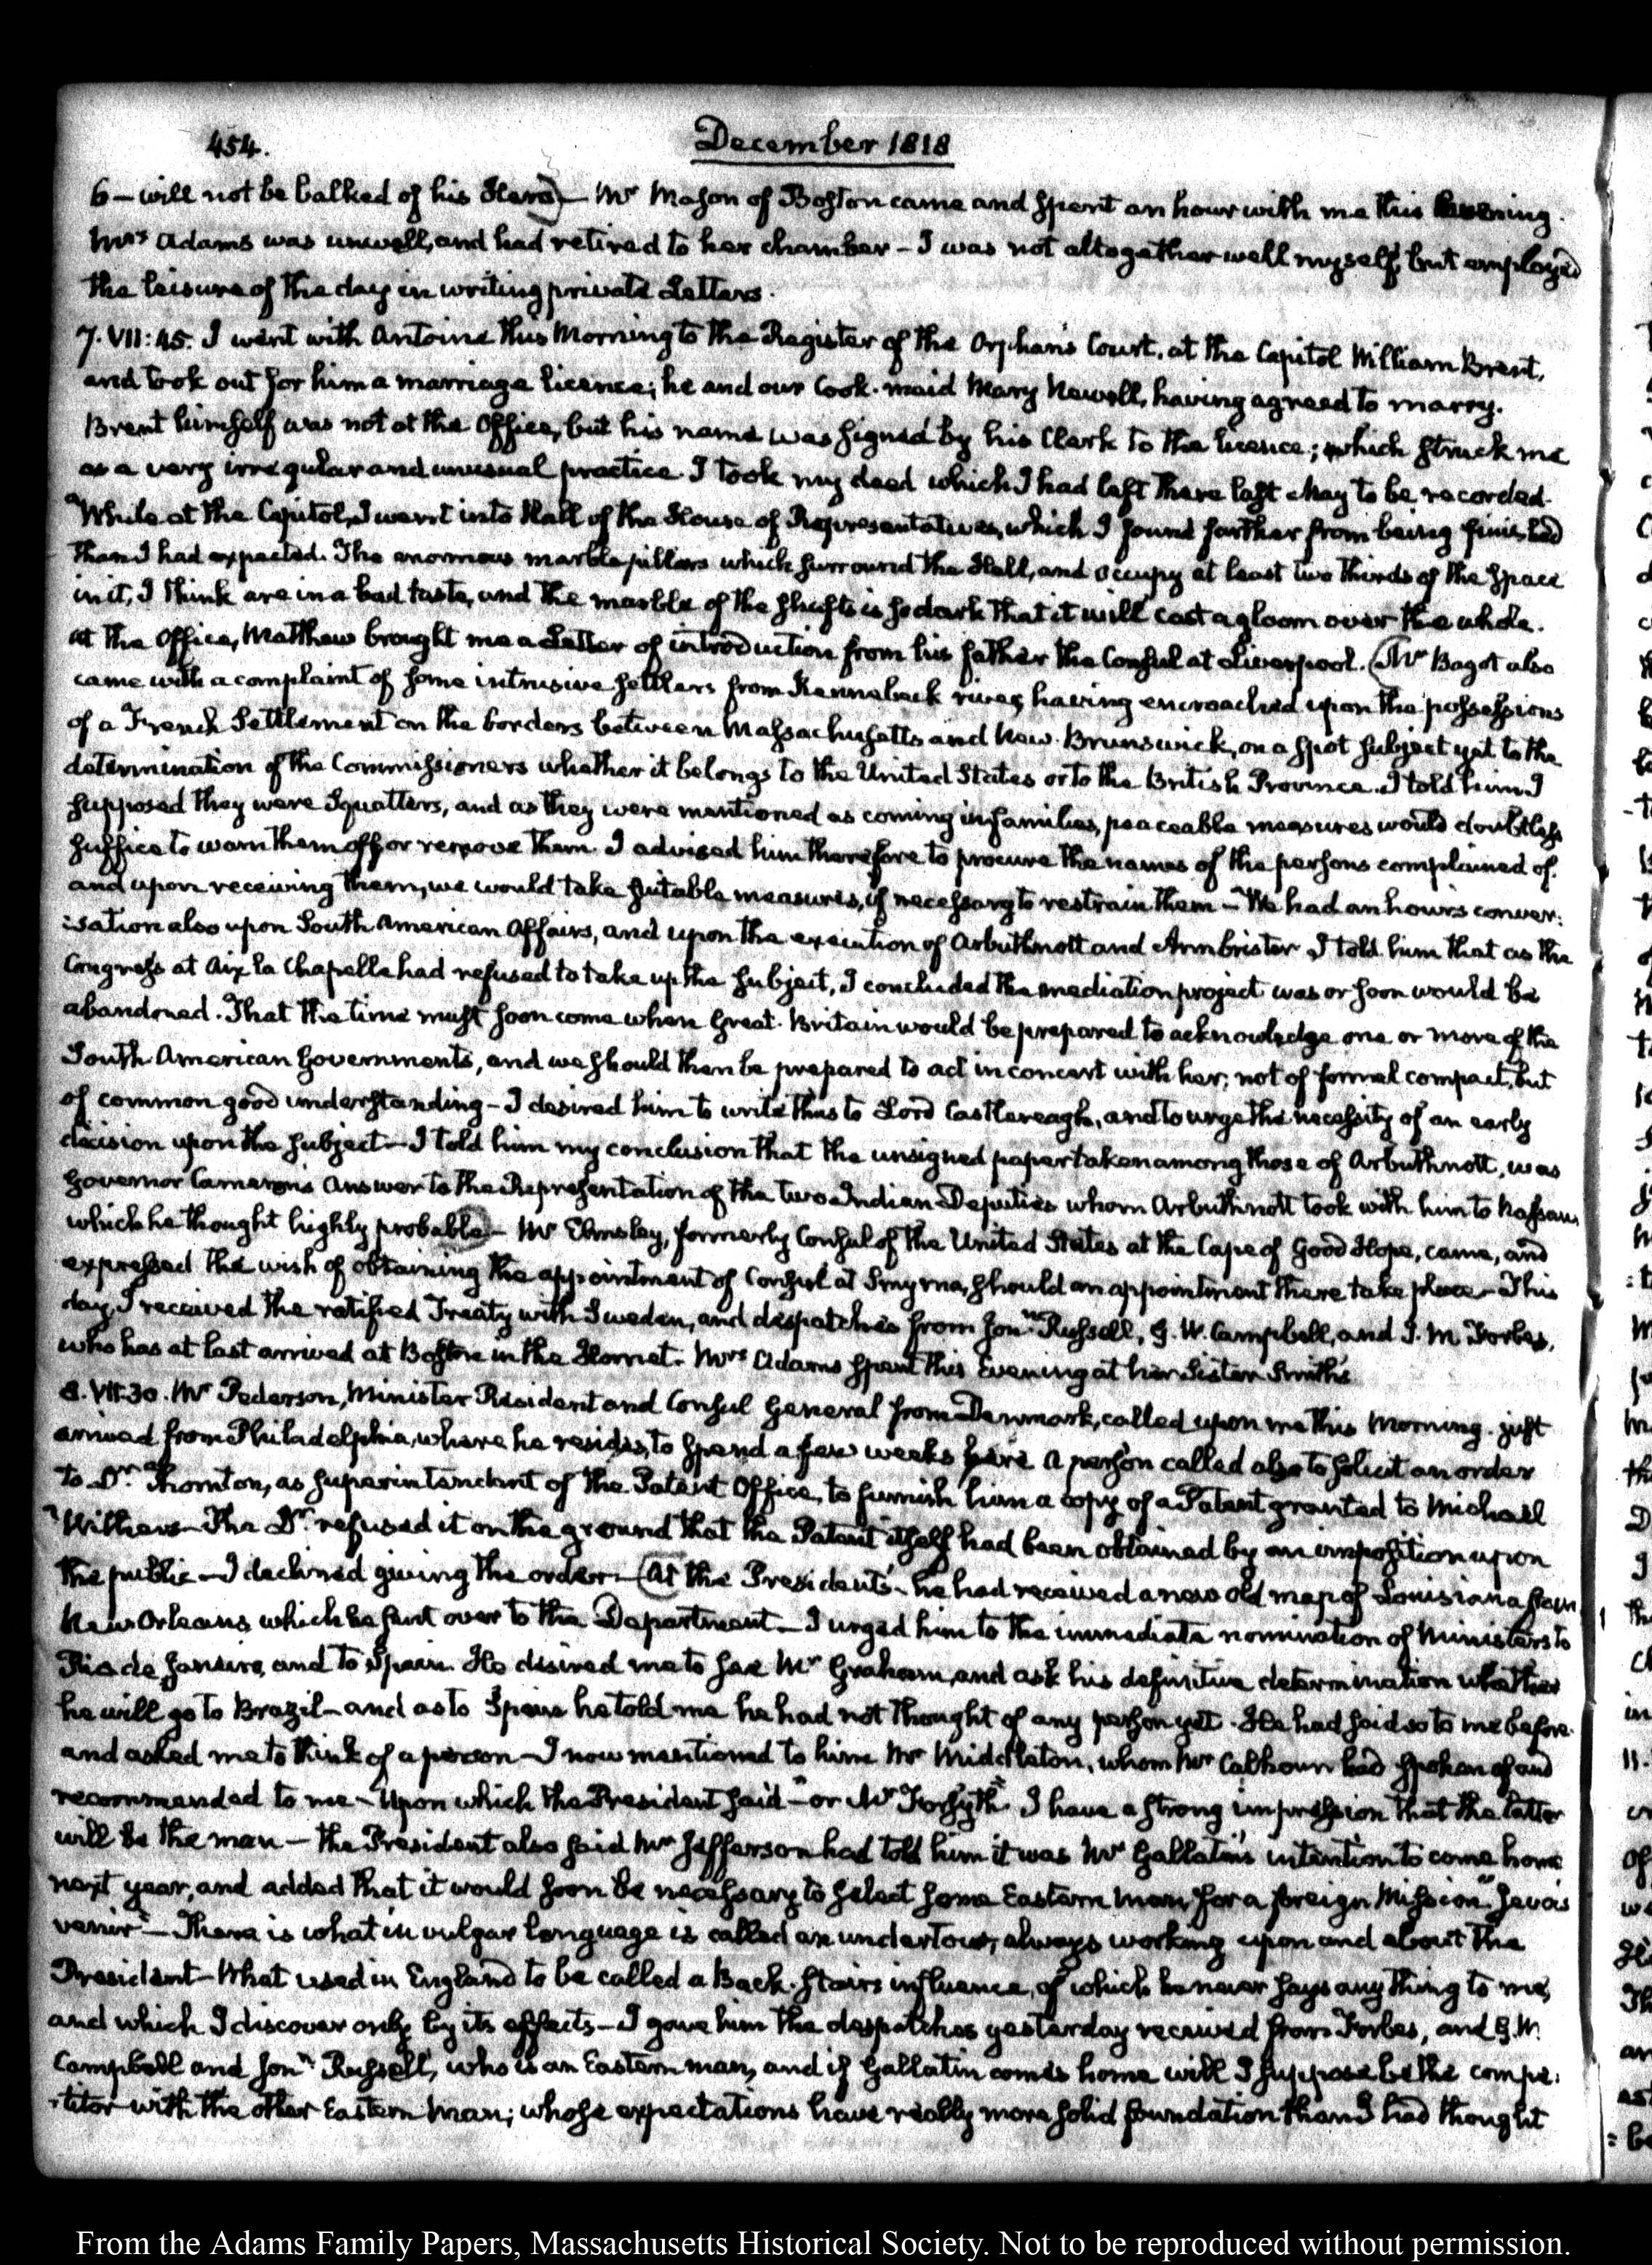 454.
December 1818
6 – will not be balked of his Hero) – Mr Mason of Boston came and spent an hour with me this Evening.
Mrs Adams was unwell, and had retired to her chamber – I was not altogether well myself, but employed
the leisure of the day in writing private Letters.
7. VII:45. I went with Antoine this Morning to the Register of the Orphan's Court, at the Capitol William Brent,
and took out for him a marriage licence; he and our Cook-maid Mary Newell, having agreed to marry.
Brent himself was not at the Office, but his name was signed by his Clerk to the licence; which struck me
as a very irregular and unusual practice. I took my deed which I had left there last May to be recorded.
While at the Capitol, I went into Hall of the House of Representatives, which I found farther from being finished
than I had expected. The enormous marble pillars which surround the Hall, and occupy at least two thirds of the space
in it, I think are in a bad taste, and the marble of the shafts is so dark that it will cast a gloom over the whole.
At the Office, Matthew brought me a Letter of introduction from his father the Consul at Liverpool. (Mr Bagot also
came with a complaint of some intrusive settlers from Kennebeck river, having encroached upon the possessions
of a French Settlement on the borders between Massachusetts and New-Brunswick, on a spot subject yet to the
determination of the Commissioners whether it belongs to the United States or to the British Province. I told him I
supposed they were Squatters, and as they were mentioned as coming in families, peaceable measures would doubtless
suffice to warn them off or remove them. I advised him therefore to procure the names of the persons complained of.
and upon receiving them, we would take suitable measures, if necessary to restrain them – We had an hour's conver:
:sation also upon South American Affairs, and upon the execution of Arbuthnott and Armbrister. I told him that as the
Congress at Aix la Chapelle had refused to take up the subject, I concluded the mediation project was or soon would be
abandoned. That the time must soon come when Great-Britain would be prepared to acknowledge one or more of the
South American Governments, and we should then be prepared to act in concert with her; not of formal compact, but
of common good understanding – I desired him to write thus to Lord Castlereagh, and to urge the necessity of an early
decision upon the subject – I told him my conclusion that the unsigned paper taken among those of Arbuthnott, was
Governor Cameron's Answer to the Representation of the two Indian Deputies whom Arbuthnott took with him to Nassau,
which he thought highly probable) – Mr Elmsley, formerly Consul of the United States at the Cape of Good Hope, came, and
expressed the wish of obtaining the appointment of Consul at Smyrna, should an appointment there take place – This
day, I received the ratified Treaty with Sweden, and despatches from Jonn Russell, G. W. Campbell, and J. M. Forbes,
who has at last arrived at Boston in the Hornet. Mrs Adams spent this Evening at her Sister Smith's.
8. VII:30. Mr Pederson, Minister Resident and Consul General from Denmark, called upon me this Morning. just
arrived from Philadelphia, where he resides, to spend a few weeks here. A person called also to solicit an order
to Dr Thornton, as Superintendent of the Patent Office, to furnish him a copy of a Patent granted to Michael
Withers – The Dr refused it on the ground that the Patent itself had been obtained by an imposition upon
the public – I declined giving the order. – (At the President's – he had received a new old map of Louisiana from
New Orleans which he sent over to the Department – I urged him to the immediate nomination of Ministers to
Rio de Janeiro, and to Spain. He desired me to see Mr Graham, and ask his definitive determination whether
he will go to Brazil – and as to Spain he told me he had not thought of any person yet. He had said so to me before
and asked me to think of a person – I now mentioned to him Mr Middleton, whom Mr Calhoun had spoken of and
recommended to me – Upon which the President said – "or Mr Forsyth." I have a strong impression that the latter
will be the man – the President also said Mr Jefferson had told him it was Mr Gallatin's intention to come home
next year, and added that it would soon be necessary to select some Eastern man "for a foreign Mission." Je vois
venir – There is what in vulgar language is called an undertow, always working upon and about the
President – What used in England to be called a Back-stairs influence, of which he never says any thing to me,
and which I discover only by its effects – I gave him the despatches yesterday received from Forbes, and G. W.
Campbell and Jonn Russell, who is an Eastern man, and if Gallatin comes home will I suppose be the compe:
:titor with the other Eastern man; whose expectations have really more solid foundation than I had thought
From the Adams Family Papers, Massachusetts Historical Society. Not to be reproduced without permission.